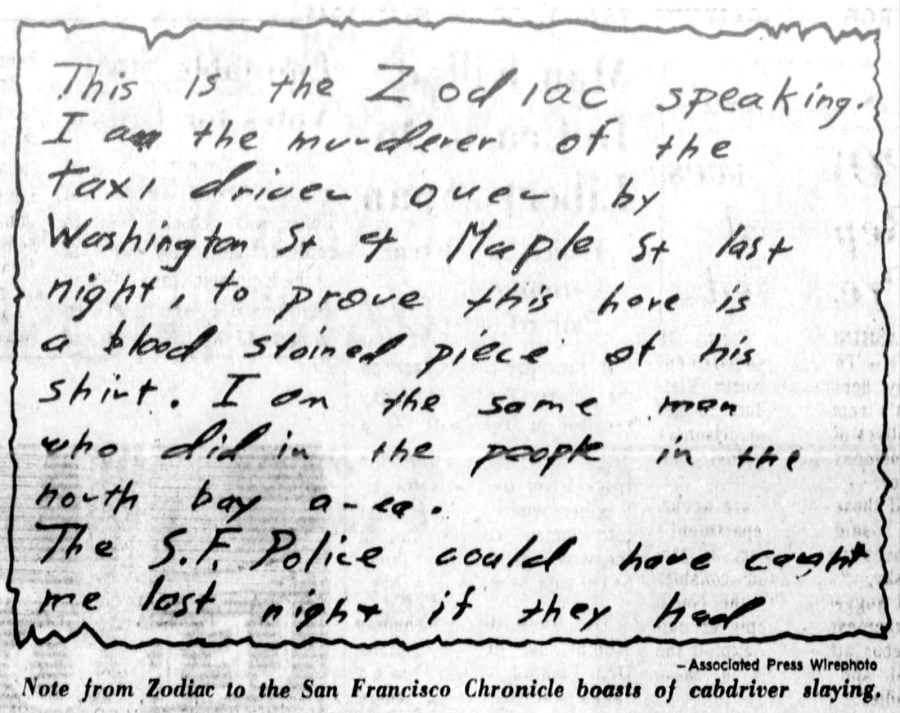 This is the Zodiac speaking.
I am the murderer of the
taxi driver over by
Washington St & Maple St last
night, to prove this here is
a blood stained piece of his
shirt. I am the same man
who did in the people in the
north bay area.
The S.F. Police could have caught
me last night if they had
—Associated Press Wirephoto
Note from Zodiac to the San Francisco Chronicle boasts of cabdriver slaying.